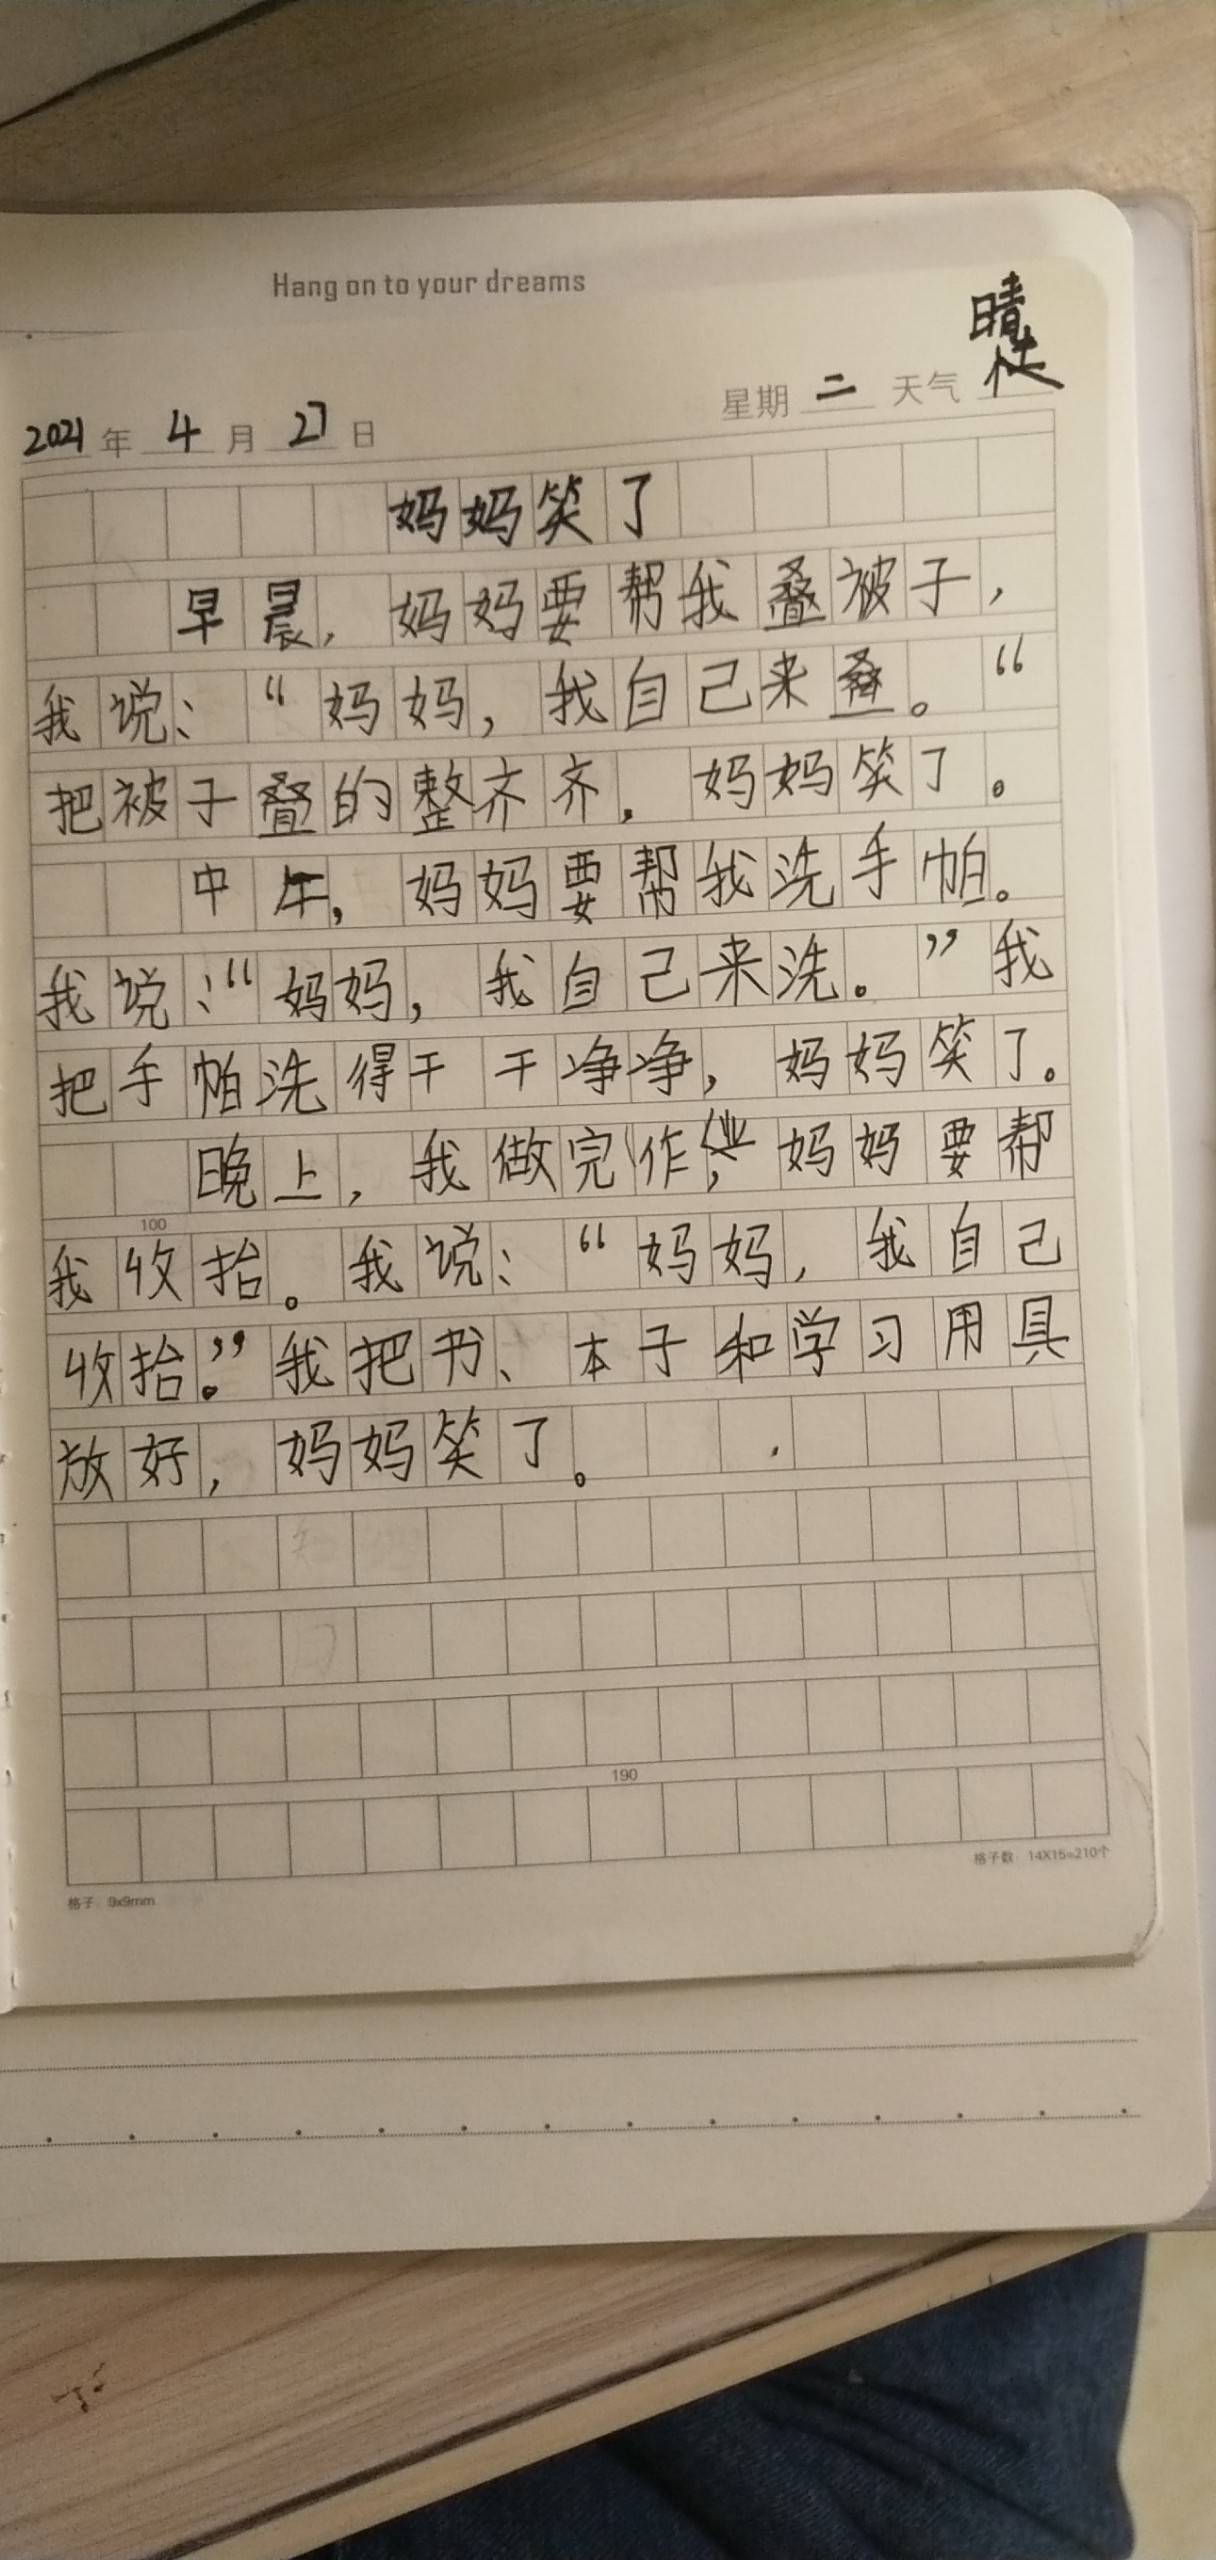 Hang on to your dreams
晴
2021 年 4 月 27 日 星期 二 天气
妈妈笑了
早晨，妈妈要帮我叠被子，
我说：“妈妈，我自己来叠。“
把被子叠的整齐齐，妈妈笑了。
中午，妈妈要帮我洗手帕。
我说：“妈妈，我自己来洗。”我
把手帕洗得干干净净，妈妈笑了。
晚上，我做完作业，妈妈要帮
100
我收拾。我说：“妈妈，我自己
收拾。”我把书、本子和学习用具
放好，妈妈笑了。
190
格子：9x9mm
格子数：14X15=210个